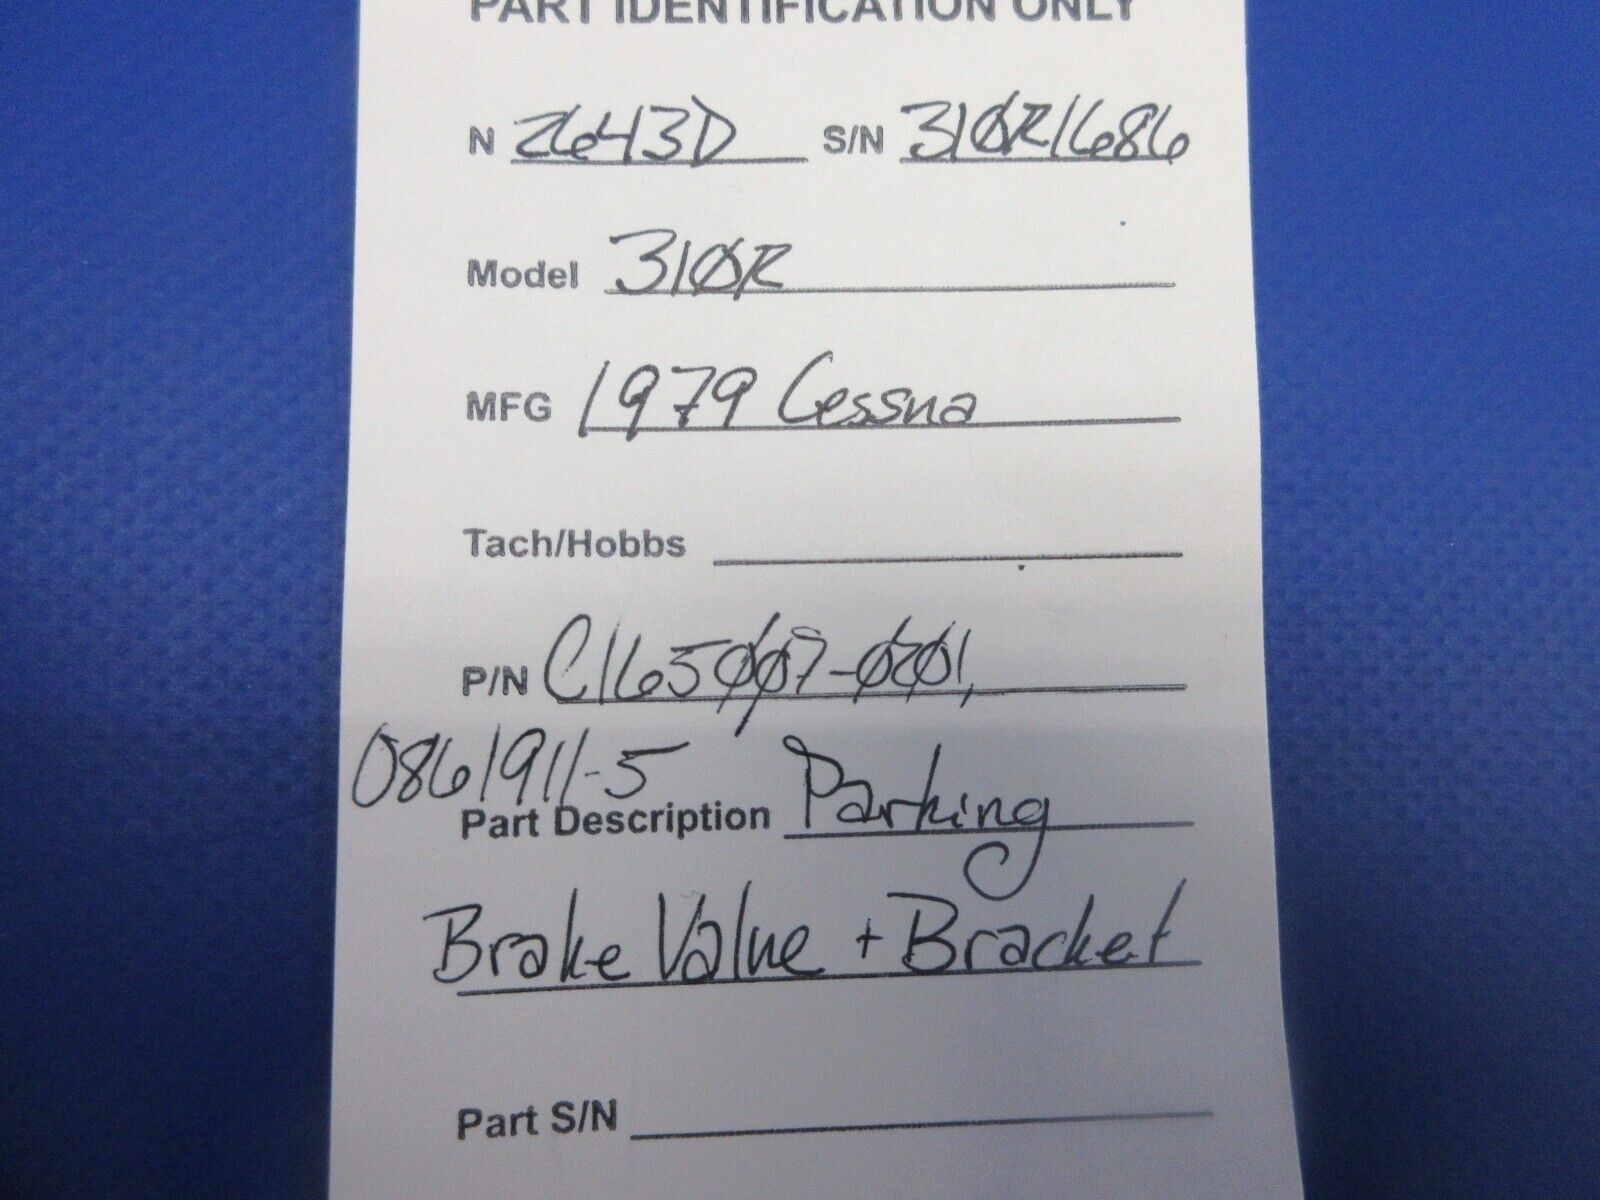 PART IDENTIFICATION ONLY
N 2643D S/N 310R1686
Model 310R
MFG 1979 Cessna
Tach/Hobbs
P/N C165007-0201,
0861911-5
Part Description Parking
Brake Valve + Bracket
Part S/N